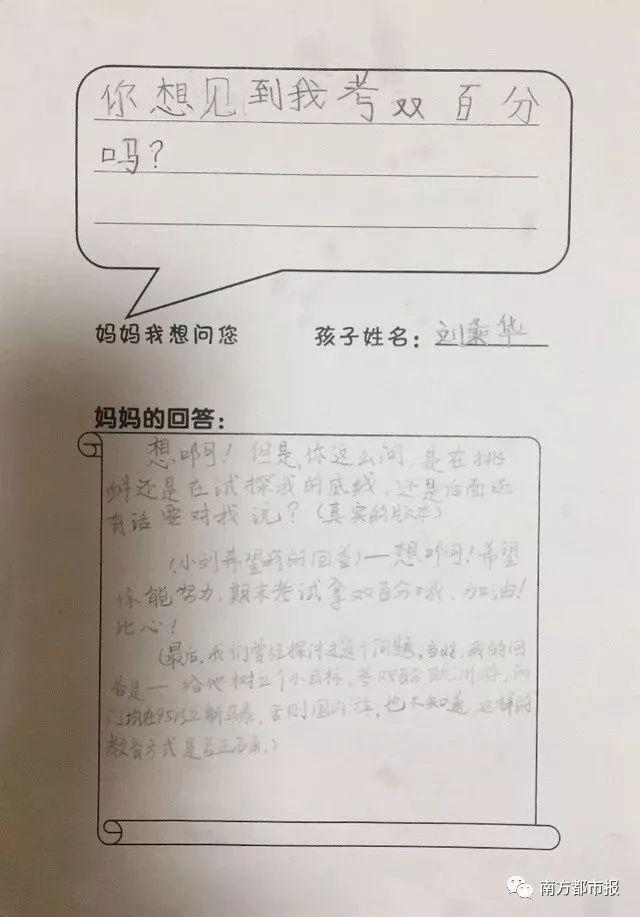 你想见到我考双百分
吗？
妈妈我想问您
孩子姓名：刘秉华
妈妈的回答：
想啊！但是,你这么问,是在挑
衅还是在试探我的底线,还是后面还
有话要对我说？（真实的版本）
（小刘希望我的回答）—想啊！希望
你能努力,期末考试拿双百分哦,加油！
比心！
（最后,我们曾经探讨过这个问题,当时,我的回
答是— 给他树立个小目标,考双百 欧洲游,两
门均在95以上新马泰,否则国内游,也不知道,这样的
教育方式是否正确。）
南方都市报